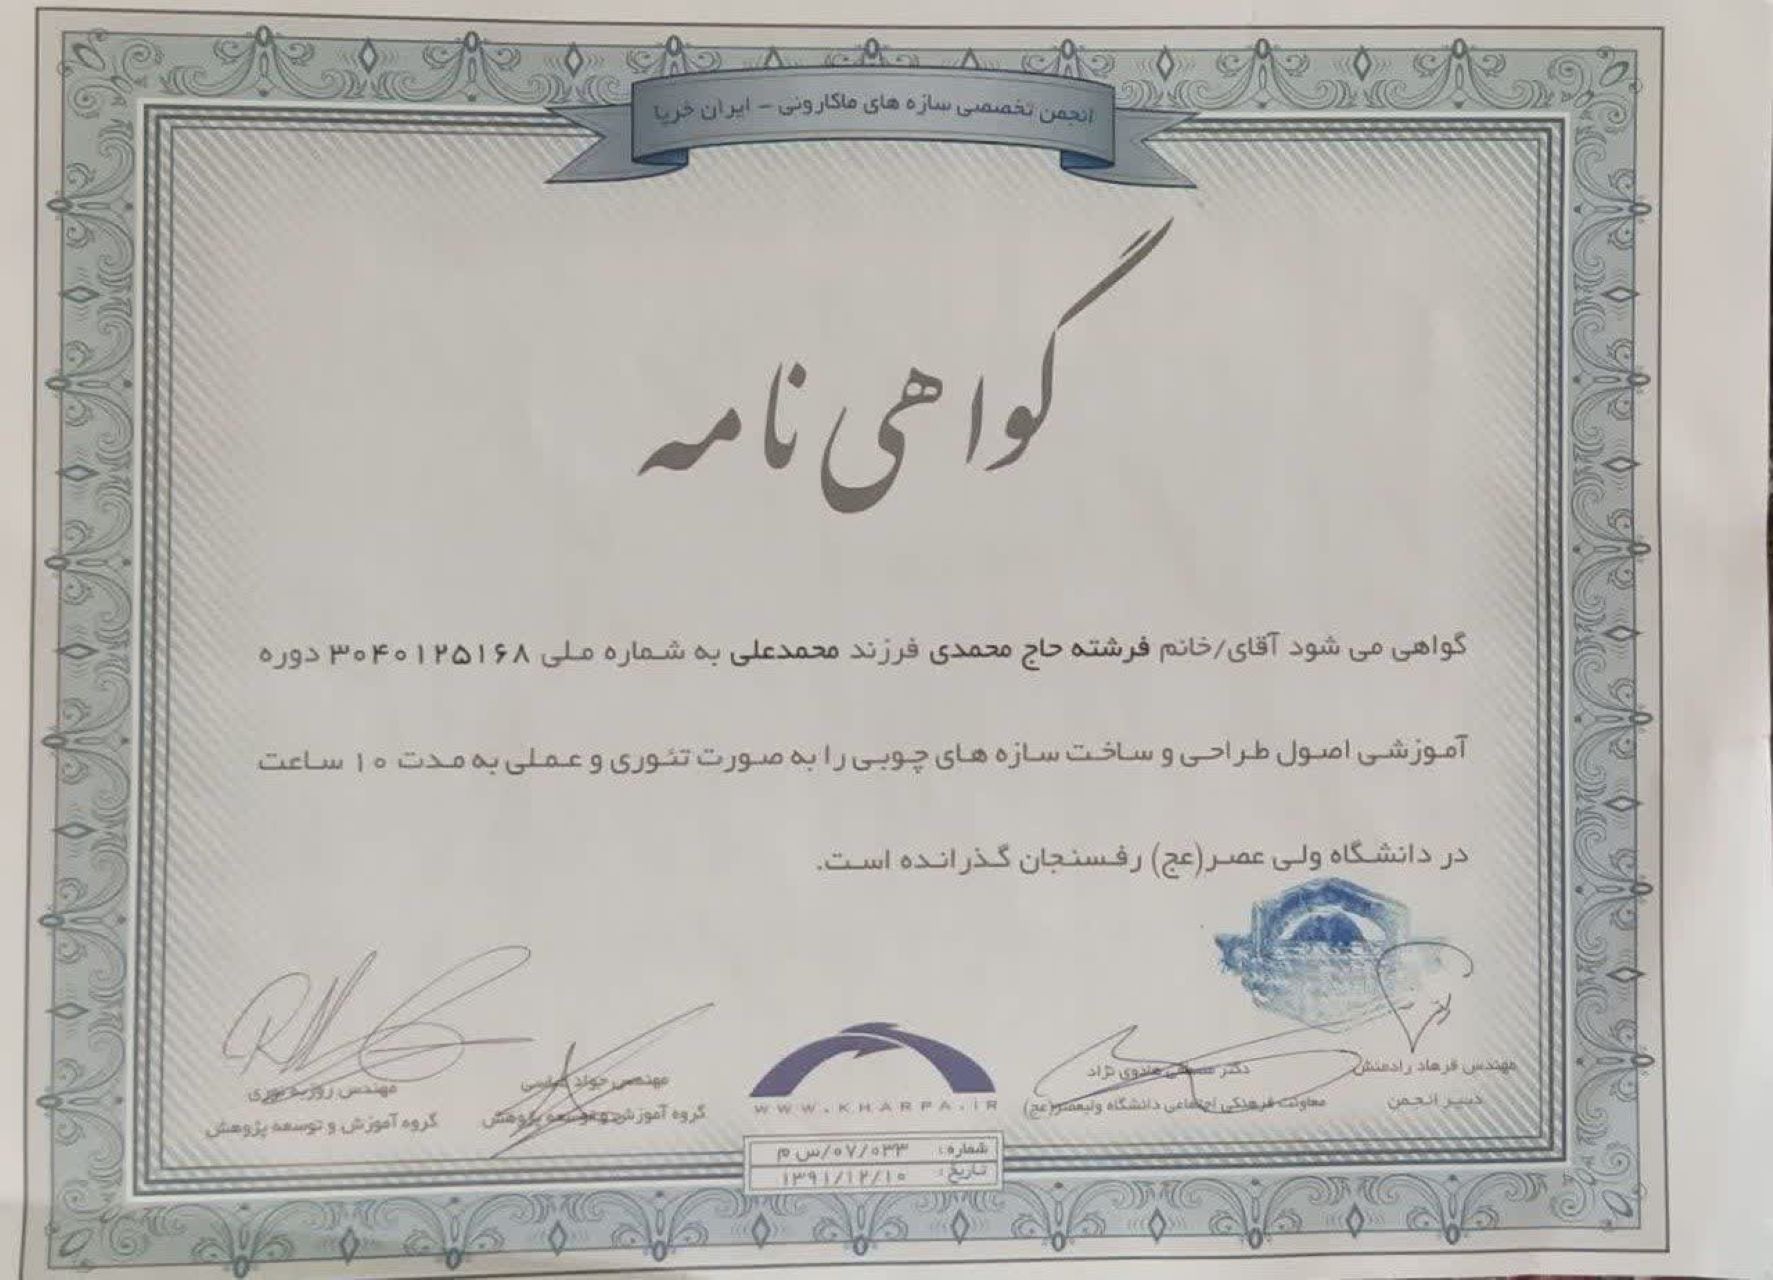 انجمن تخصصی سازه های ماکارونی - ایران خرپا
گواهی نامه
گواهی می شود آقای/خانم فرشته حاج محمدی فرزند محمدعلی به شماره ملی ۳۰۴۰۱۲۵۱۶۸ دوره
آموزشی اصول طراحی و ساخت سازه های چوبی را به صورت تئوری و عملی به مدت ۱۰ ساعت
در دانشگاه ولی عصر(عج) رفسنجان گذرانده است.
مهندس فرهاد رادمنش
دبیر انجمن
دکتر هادوی نژاد
معاونت فرهنگی اجتماعی دانشگاه ولیعصر(عج)
WWW.KHARPA.IR
مهندس جواد عباسی
گروه آموزش و توسعه پژوهش
مهندس روزبه نوری
گروه آموزش و توسعه پژوهش
شماره: ۰۷/۰۳۳/س م
تاریخ: ۱۳۹۱/۱۲/۱۰